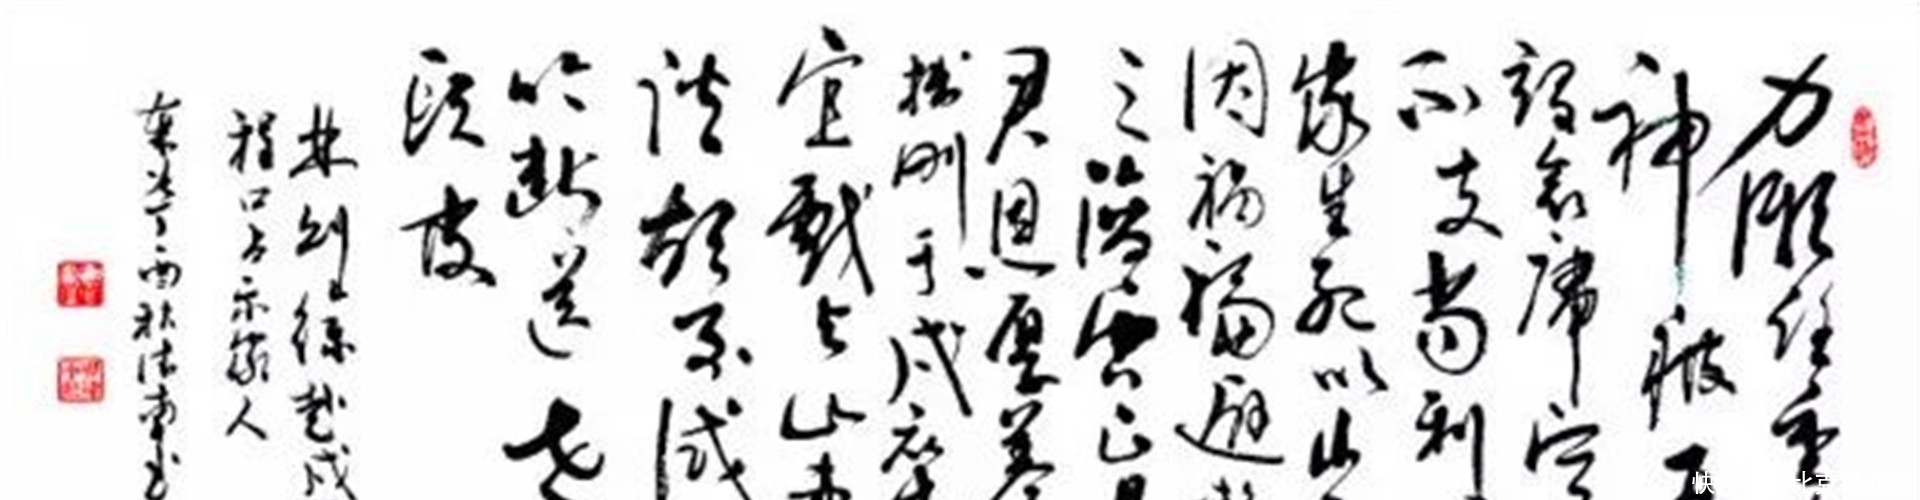 力微任重
神疲再
竭衰庸定
不支苟利
家生死以岂
因祸福避趋
之谪居正是
君恩厚养
拙刚于戍卒
宜戏与山妻
谈故事试
吟断送老
头皮
林则徐赴戍
程口占示家人
丁酉秋
快